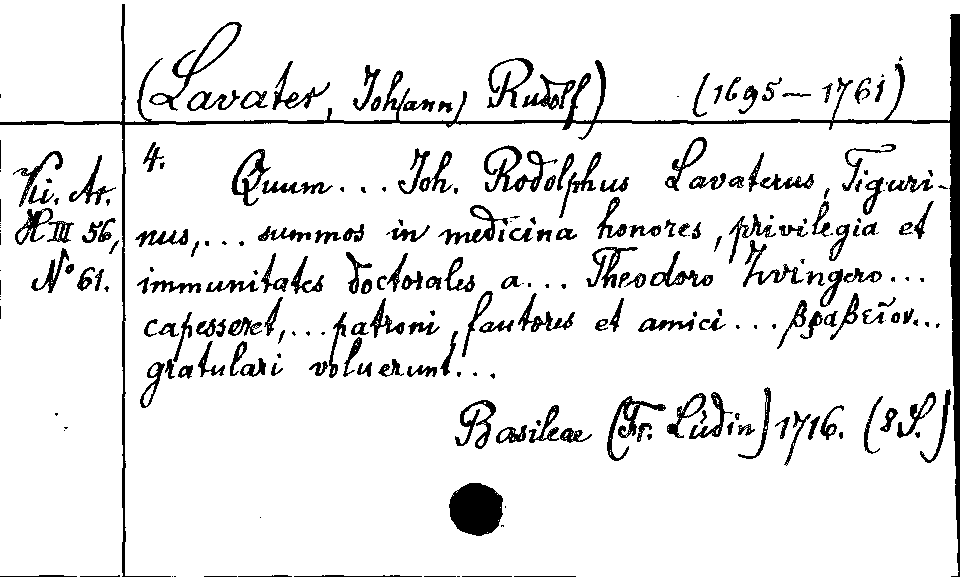 (Lavater, Joh(ann) Rudolf) (1695—1761)
Ki. Ar.
H III 56,
No 61.
4. Quum... Joh. Rodolphus Lavaterus, Tiguri-
nus,... summos in medicina honores, privilegia et
immunitates doctorales a... Theodoro Zvingero...
capesseret,... patroni, fautores et amici... βραβεῖον...
gratulari voluerunt...
Basileae (Fr. Lüdin) 1716. (8 S.)